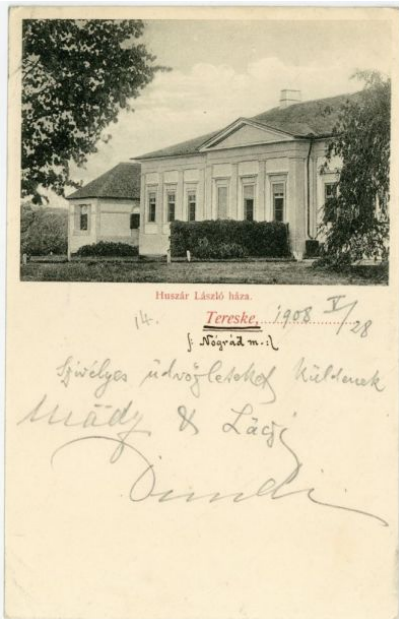 Huszár László háza.
14.
Tereske, 1908 V/28
/: Nógrád m. :/
Szivélyes üdvözleteket küldenek
Mády & Lági
Dundi